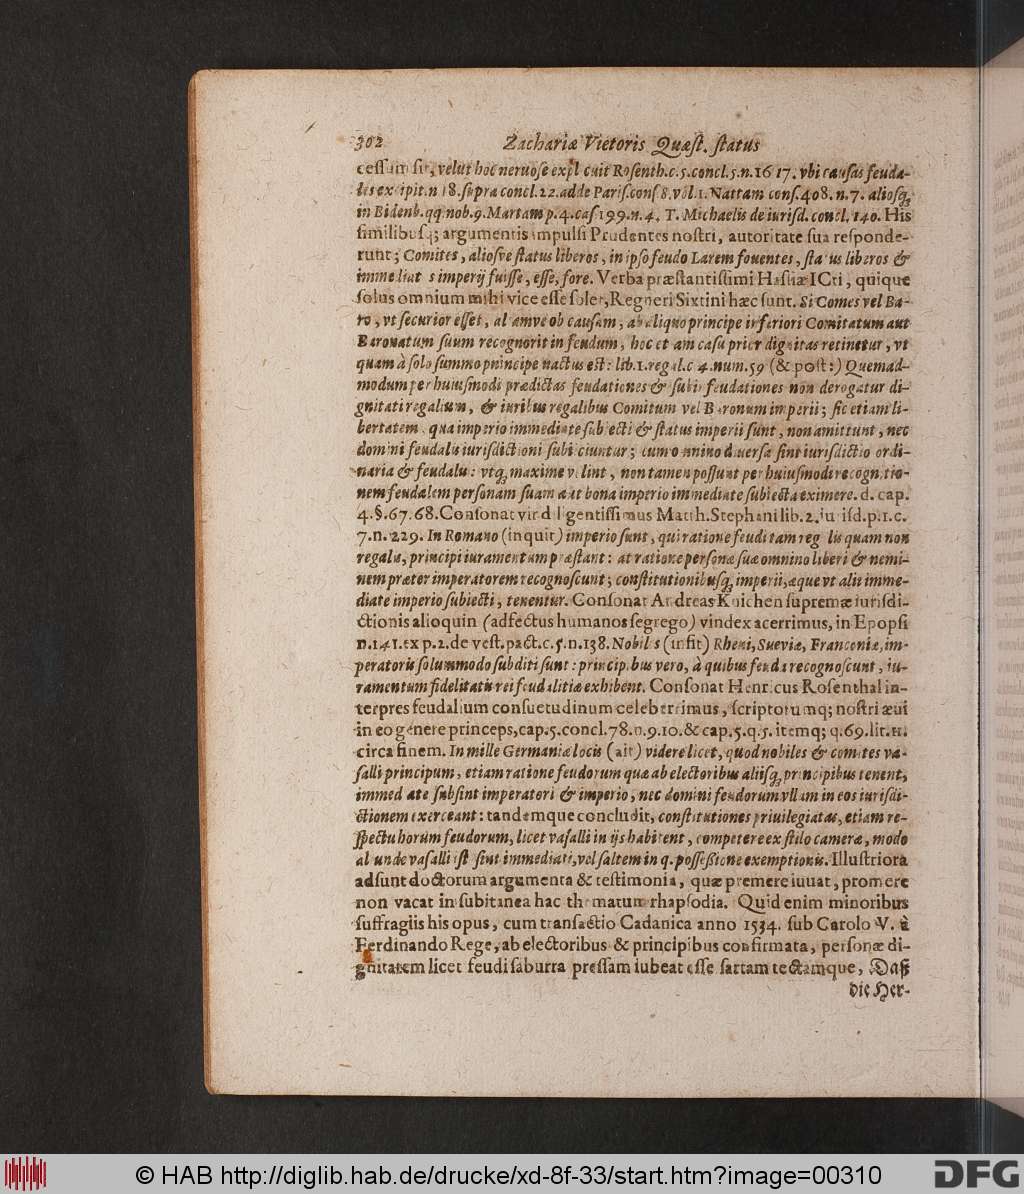 302 Zachariæ Vietoris Quæst. status
cessum sit, velut hoc nervose explicuit Rosenth.c.5.concl.5.n.16 17. vbi causas feuda-
les excipit.n 18. supra concl.22. adde Paris.cons 8. vol.1. Nattam cons.408. n.7. aliosq;
in Bidenb.qq nob.9. Martam p.4. cas 199. n.4. T. Michaelis de iurisd. concl. 140. His
similibusq; argumentis impulsi Prudentes nostri, autoritate sua responde-
runt; Comites, aliosve status liberos, in ipso feudo Larem foventes, status liberos &
immediatos imperij fuisse, esse, fore. Verba præstantissimi Hassiæ ICti, quique
solus omnium mihi vice esse solet, Regneri Sixtini hæc sunt. Si Comes vel Ba-
ro, vt securior esset, aliamve ob causam, ab aliquo principe inferiori Comitatum aut
Baronatum suum recognorit in feudum, hoc etiam casu prior dignitas retinetur, vt
quam à solo summo principe nactus est: lib.1.regal.c 4.num.59 (& post:) Quemad-
modum per huiusmodi prædictas feudationes & subinfeudationes non derogatur di-
gnitati regalium, & iuribus regalibus Comitum vel Baronum imperii; sic etiam li-
bertatem, qua imperio immediate subiecti & status imperii sunt, non amittunt, nec
domini feudalis iurisdictioni subiiciuntur; cum omnino diversæ sint iurisdictio ordi-
naria & feudalis: vtq; maxime velint, non tamen possunt per huiusmodi recognitio-
nem feudalem personam suam aut bona imperio immediate subiecta eximere. d. cap.
4.§.67.68. Consonat vir diligentissimus Matth. Stephani lib.2. iurisd.p.1.c.
7.n.229. In Romano (inquit) imperio sunt, qui ratione feudi tam regalis quam non
regalis, principi iuramentum præstant: at ratione personæ suæ omnino liberi & nemi-
nem præter imperatorem recognoscunt; constitutionibusq; imperii, æque vt alii imme-
diate imperio subiecti, tenentur. Consonat Andreas Knichen supremæ iurisdi-
ctionis alioquin (adfectus humanos segrego) vindex acerrimus, in Epopsi
n.141.ex p.2.de vest.pact.c.5.n.138. Nobiles (infit) Rheni, Sueviæ, Franconiæ, im-
peratoris solummodo subditi sunt: principibus vero, à quibus feuda recognoscunt, iu-
ramentum fidelitatis rei feudalitiæ exhibent. Consonat Henricus Rosenthal in-
terpres feudalium consuetudinum celeberrimus, scriptorumq; nostri ævi
in eo genere princeps, cap.5.concl.78.n.9.10.& cap.5.q.5. itemq; q.69.lit.H.
circa finem. In mille Germaniæ locis (ait) videre licet, quod nobiles & comites va-
salli principum, etiam ratione feudorum quæ ab electoribus aliisq; principibus tenent,
immediate subsint imperatori & imperio, nec domini feudorum vllam in eos iurisdi-
ctionem exerceant: tandemque concludit, constitutiones privilegiatas, etiam re-
spectu horum feudorum, licet vasalli in ijs habitent, competere ex stilo cameræ, modo
aliunde vasalli isti sint immediati, vel saltem in q. possessione exemptionis. Illustriora
adsunt doctorum argumenta & testimonia, quæ premere iuvat, promere
non vacat in subitanea hac thematum rhapsodia. Quid enim minoribus
suffragiis his opus, cum transactio Cadanica anno 1534. sub Carolo V. à
Ferdinando Rege, ab electoribus & principibus confirmata, personæ di-
gnitatem licet feudi saburra pressam iubeat esse sartam tectamque, Daß
die Her-
© HAB http://diglib.hab.de/drucke/xd-8f-33/start.htm?image=00310 DFG